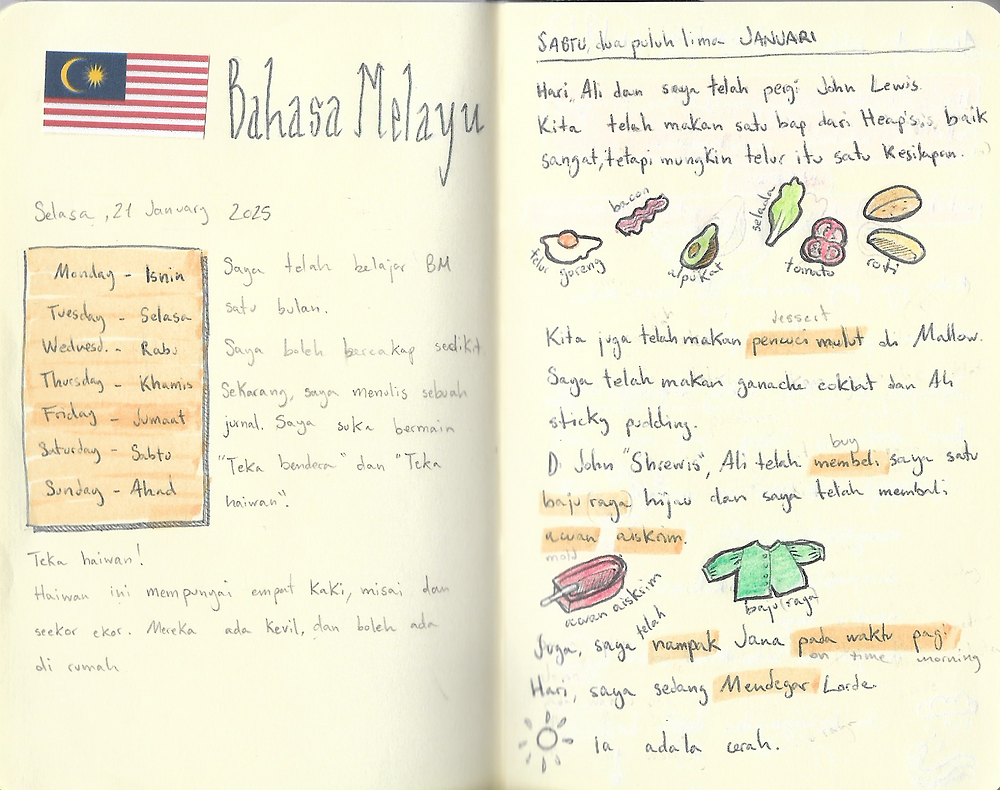 Bahasa Melayu
Selasa, 21 January 2025
Monday - Isnin
Tuesday - Selasa
Wednesd. - Rabu
Thursday - Khamis
Friday - Jumaat
Saturday - Sabtu
Sunday - Ahad
Saya telah belajar BM
satu bulan.
Saya boleh bercakap sedikit
Sekarang, saya menulis sebuah
jurnal. Saya suka bermain
"Teka bendera" dan "Teka
haiwan".
Teka haiwan!
Haiwan ini mempunyai empat kaki, misai dan
seekor ekor. Mereka ada kevil, dan boleh ada
di rumah
SABTU, dua puluh lima JANUARI
Hari, Ali dan saya telah pergi John Lewis.
Kita telah makan satu bap dari Heaps, baik
sangat, tetapi mungkin telur itu satu kesilapan.
telur goreng
bacon
alpukat
selada
tomato
roti
dessert
Kita juga telah makan pencuci mulut di Mallow.
Saya telah makan ganache coklat dan Ali
sticky pudding.
buy
Di John "Shrewis", Ali telah membeli saya satu
baju (raga) hijau dan saya telah membeli
acuan aiskrim.
mold
acuan aiskrim
baju (raga)
telah
Juga, saya nampak Jana pada waktu pagi
on time morning
Hari, saya sedang Mendegar Lorde.
ia adala cerah.